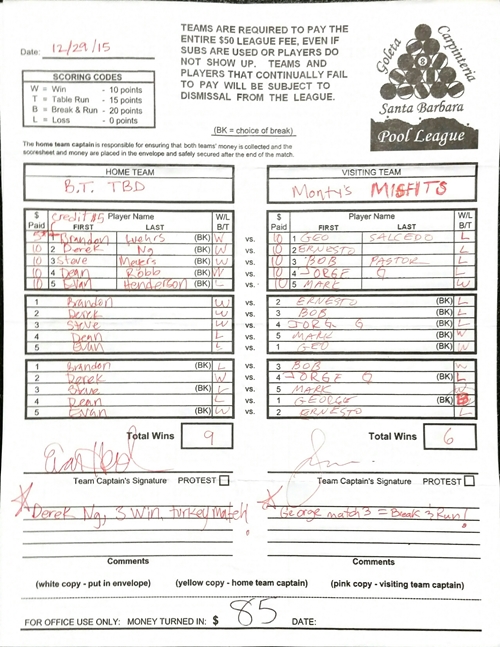 Date: 12/29/15
TEAMS ARE REQUIRED TO PAY THE
ENTIRE $50 LEAGUE FEE, EVEN IF
SUBS ARE USED OR PLAYERS DO
NOT SHOW UP. TEAMS AND
PLAYERS THAT CONTINUALLY FAIL
TO PAY WILL BE SUBJECT TO
DISMISSAL FROM THE LEAGUE.
Goleta Carpinteria
8
Santa Barbara
Pool League
SCORING CODES
W = Win - 10 points
T = Table Run - 15 points
B = Break & Run - 20 points
L = Loss - 0 points
(BK = choice of break)
The home team captain is responsible for ensuring that both teams' money is collected and the
scoresheet and money are placed in the envelope and safely secured after the end of the match.
HOME TEAM VISITING TEAM
B.T. TBD Monty's MISFITS
$ Paid credit $5 Player Name FIRST LAST W/L B/T
$ Paid Player Name FIRST LAST W/L B/T
1 Brandon Luehrs (BK) W vs. 10 1 GEO SALCEDO L
10 2 Derek Ng (BK) W vs. 10 2 ERNESTO L
10 3 Steve Meyers (BK) W vs. 10 3 BOB PASTOR L
10 4 Dean Robb (BK) W vs. 10 4 JORGE Q L
10 5 Evan Henderson (BK) L vs. 10 5 MARK W
1 Brandon W vs. 2 ERNESTO (BK) L
2 Derek W vs. 3 BOB (BK) L
3 Steve W vs. 4 JORG Q (BK) L
4 Dean L vs. 5 MARK (BK) W
5 Evan L vs. 1 GEO (BK) W
1 Brandon (BK) L vs. 3 BOB W
2 Derek W vs. 4 JORGE Q (BK) L
3 Steve (BK) L vs. 5 MARK W
4 Dean L vs. 1 GEORGE (BK) B
5 Evan (BK) W vs. 2 ERNESTO L
Total Wins 9 Total Wins 6
Team Captain's Signature PROTEST Team Captain's Signature PROTEST
Derek Ng, 3 Win, turkey match!
George match 3 = Break & Run!
Comments Comments
(white copy - put in envelope) (yellow copy - home team captain) (pink copy - visiting team captain)
FOR OFFICE USE ONLY: MONEY TURNED IN: $ 85 DATE: